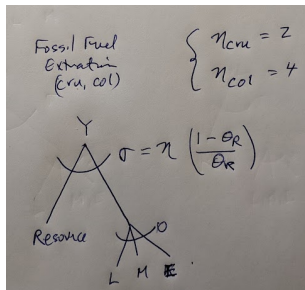 Fossil Fuel
Extration
(cru, col)
η_cru = 2
η_col = 4
Y
σ = η (1-θ_R / θ_R)
Resource
0
L M E